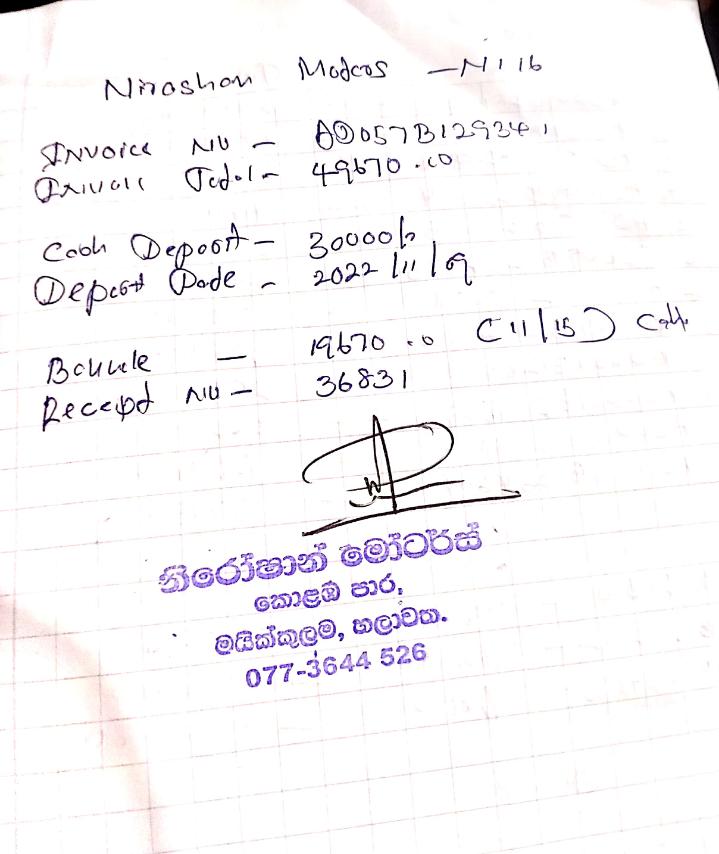 Niroshan Motors – N116
Invoice NO – AD057B129341
Invoice Total – 49670.00
Cash Deposit – 30000/=
Deposit Date – 2022/11/09
Balance – 19670.0 (11/15) Cash
Receipt NO – 36831
නිරෝෂාන් මෝටර්ස්
කොළඹ පාර,
මයික්කුලම, හලාවත.
077-3644 526